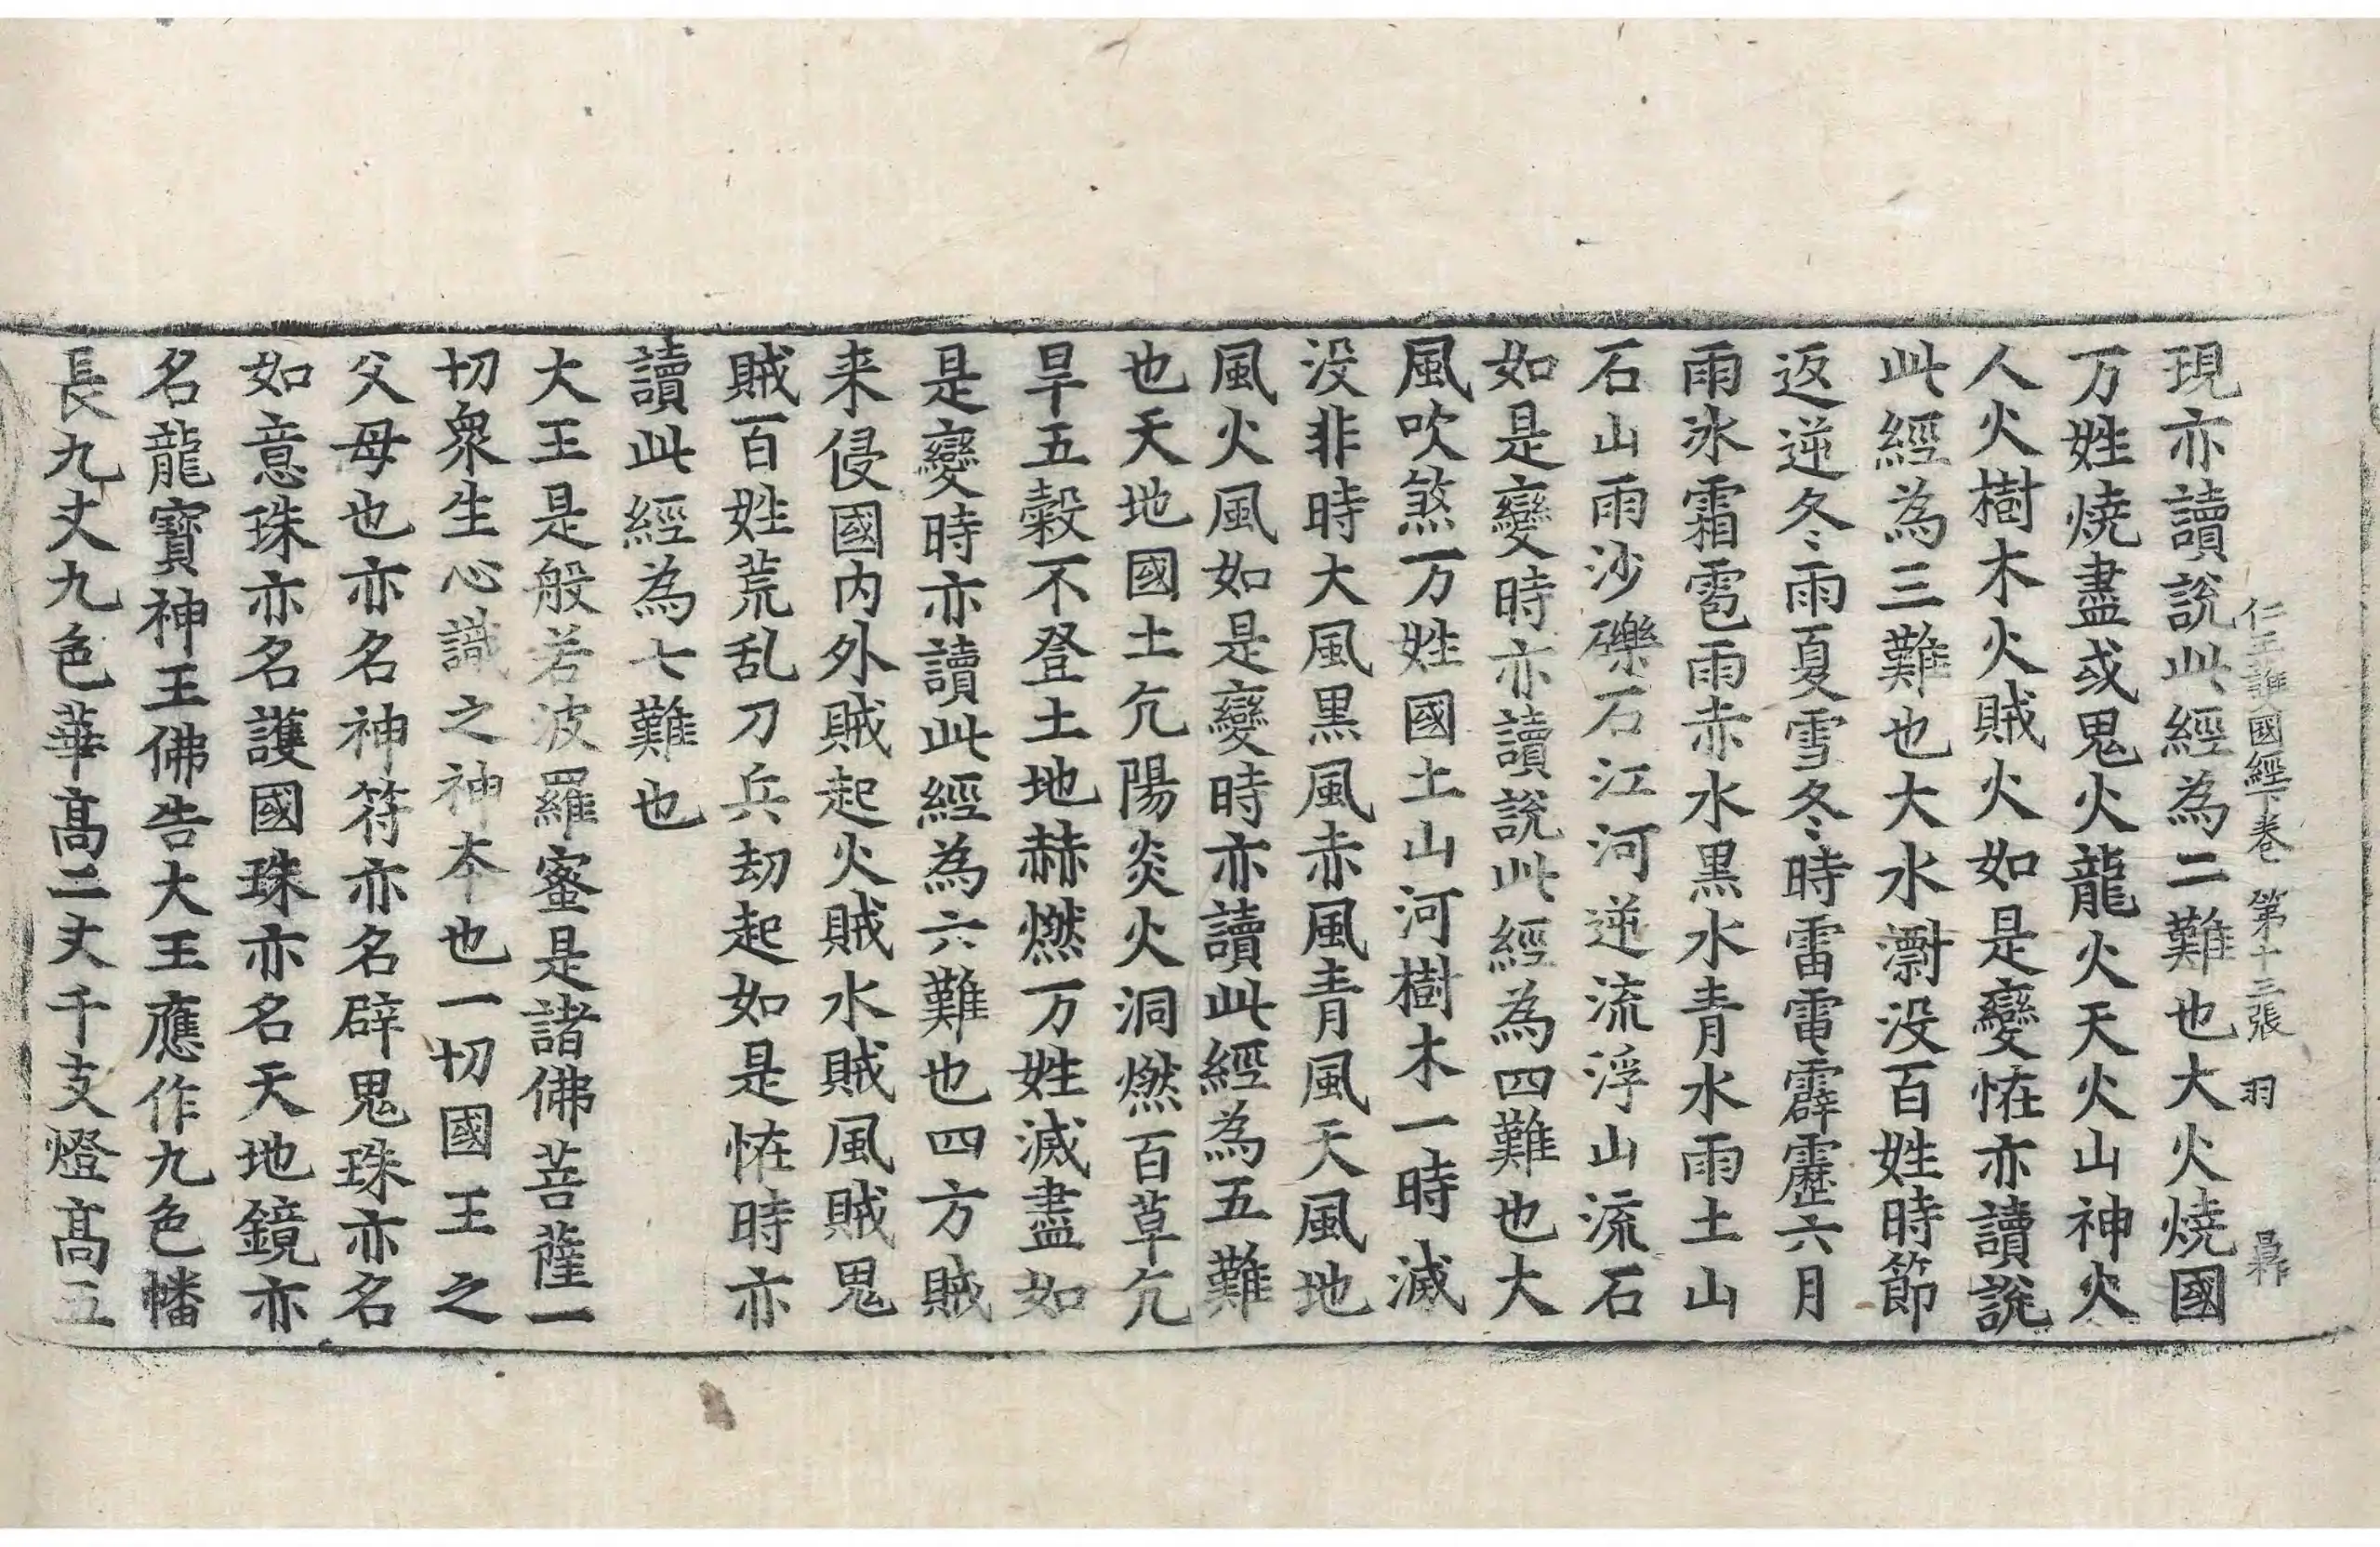 仁王護國經下卷 第十三張 羽
現亦讀說此經為二難也大火燒國
万姓燒盡或鬼火龍火天火山神火
人火樹木火賊火如是變恠亦讀說
此經為三難也大水漂没百姓時節
返逆冬雨夏雪冬時雷電霹靂六月
雨氷霜雹雨赤水黑水青水雨土山
石山雨沙礫石江河逆流浮山流石
如是變時亦讀說此經為四難也大
風吹煞万姓國土山河樹木一時滅
没非時大風黒風赤風青風天風地
風火風如是變時亦讀此經為五難
也天地國土亢陽炎火洞燃百草亢
旱五穀不登土地赫燃万姓滅盡如
是變時亦讀此經為六難也四方賊
来侵國内外賊起火賊水賊風賊鬼
賊百姓荒乱刀兵劫起如是恠時亦
讀此經為七難也
大王是般若波羅蜜是諸佛菩薩一
切衆生心識之神本也一切國王之
父母也亦名神符亦名辟鬼珠亦名
如意珠亦名護國珠亦名天地鏡亦
名龍寶神王佛告大王應作九色幡
長九丈九色華髙二丈千支燈髙五